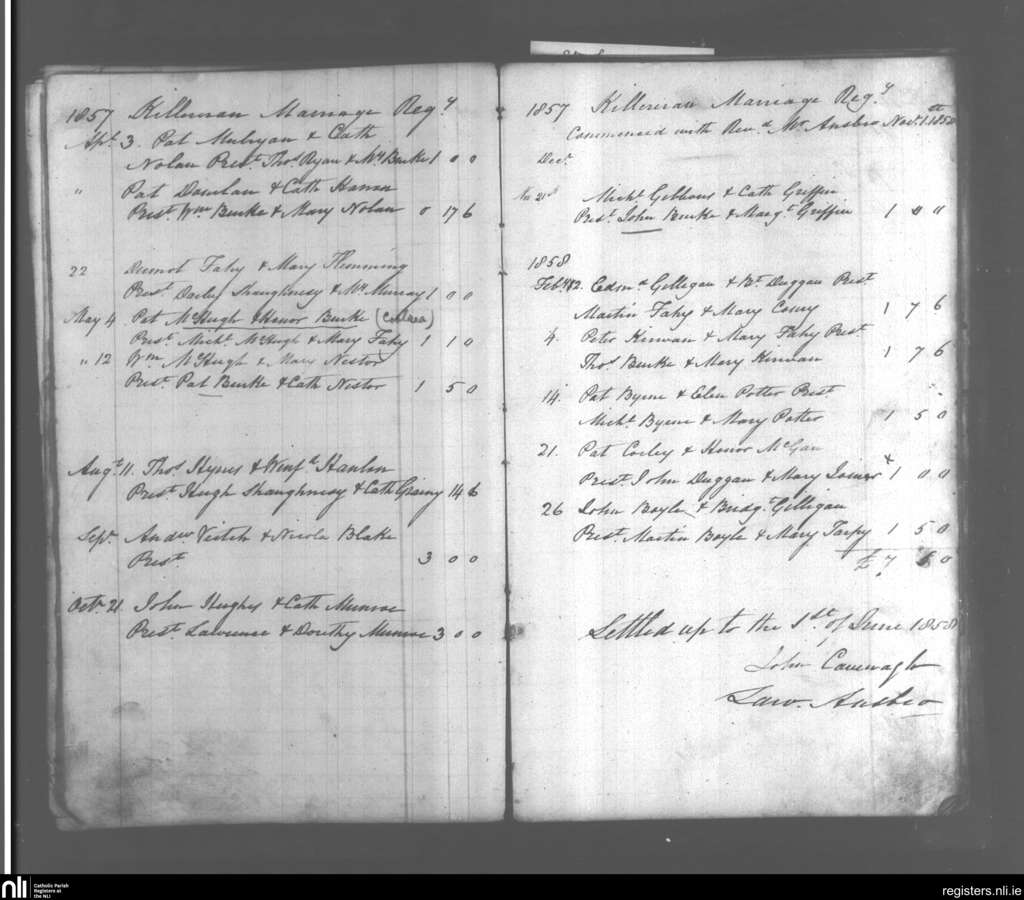 1857 Killereran Marriage Reg.y
Apl. 3. Pat Mulryan & Cath
Nolan Prest. Thos Ryan & My Burke 1 0 0
" Pat Donlan & Cath Hanon
Prest Wm Burke & Mary Nolan 0 17 6
22 Dermot Fahy & Mary Flemming
Prest. Darby Shaughnesy & My Murray 1 0 0
May 4 Pat McHugh & Honor Burke
Prest. Michl. McHugh & Mary Fahy 1 1 0
" 12 Wm. McHugh & Mary Nestor
Prest. Pat Burke & Cath Nestor 1 5 0
Augt. 11. Thos Hynes & Winfd Hanlin
Prest. Hugh Shaughnesy & Cath Grainy 14 6
Sept. Andw Veitch & Nicola Blake
Prest. 3 0 0
Octr. 21 John Hughes & Cath Munroe
Prest. Lawrence & Dorothy Munroe 3 0 0
1857 Killereran Marriage Reg.y
Commenced with Rev.d Mr. Ansbro Novr. 1st 1858
Decr.
Nov 21st Michl. Gibbons & Cath Griffin
Prest. John Burke & Margt. Griffin 1 " "
1858
Feby. 12. Edmd Gilligan & Bt. Duggan Prest
Martin Fahy & Mary Coury 1 7 6
4. Peter Kirwan & Mary Fahy Prest
Thos. Burke & Mary Kirwan 1 7 6
14. Pat Byrne & Elen Potter Prest
Michl. Byrne & Mary Potter 1 5 0
21. Pat Corley & Honor McGan
Prest. John Duggan & Mary x 1 0 0
26 John Boyle & Bridgt. Gilligan
Prest. Martin Boyle & Mary Tarpy 1 5 0
£ 7 0
Settled up to the 1st. of June 1858
John Cavanagh
Law. Ansbro
nli Catholic Parish
Registers at
the NLI
registers.nli.ie